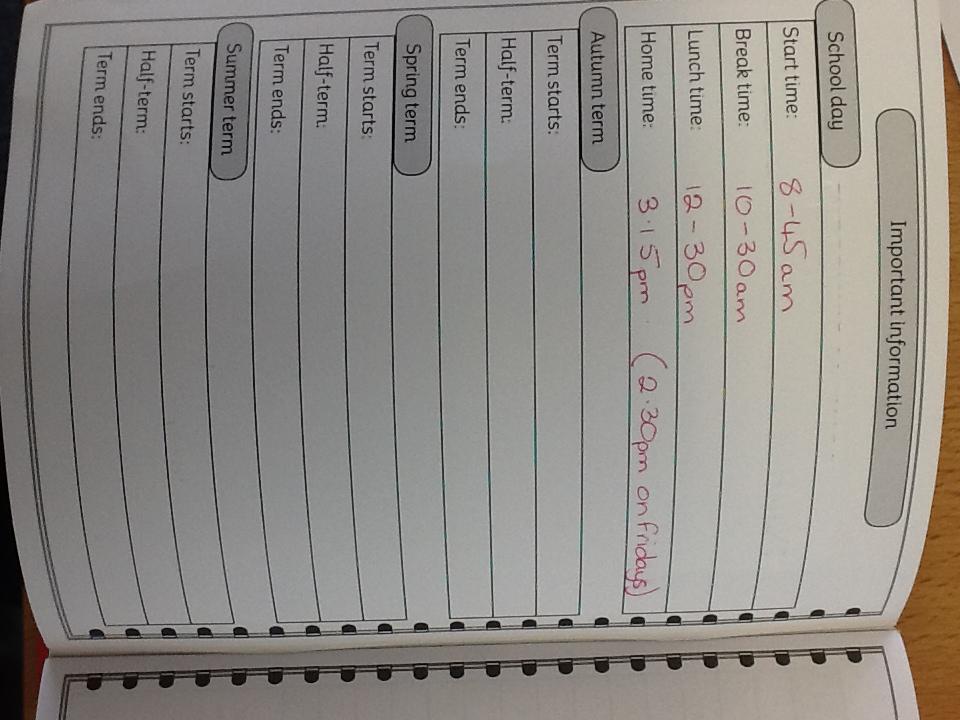 Important information
School day
Start time: 8-45am
Break time: 10-30am
Lunch time: 12-30pm
Home time: 3.15pm (2.30pm on fridays)
Autumn term
Term starts:
Half-term:
Term ends:
Spring term
Term starts:
Half-term:
Term ends:
Summer term
Term starts:
Half-term:
Term ends: